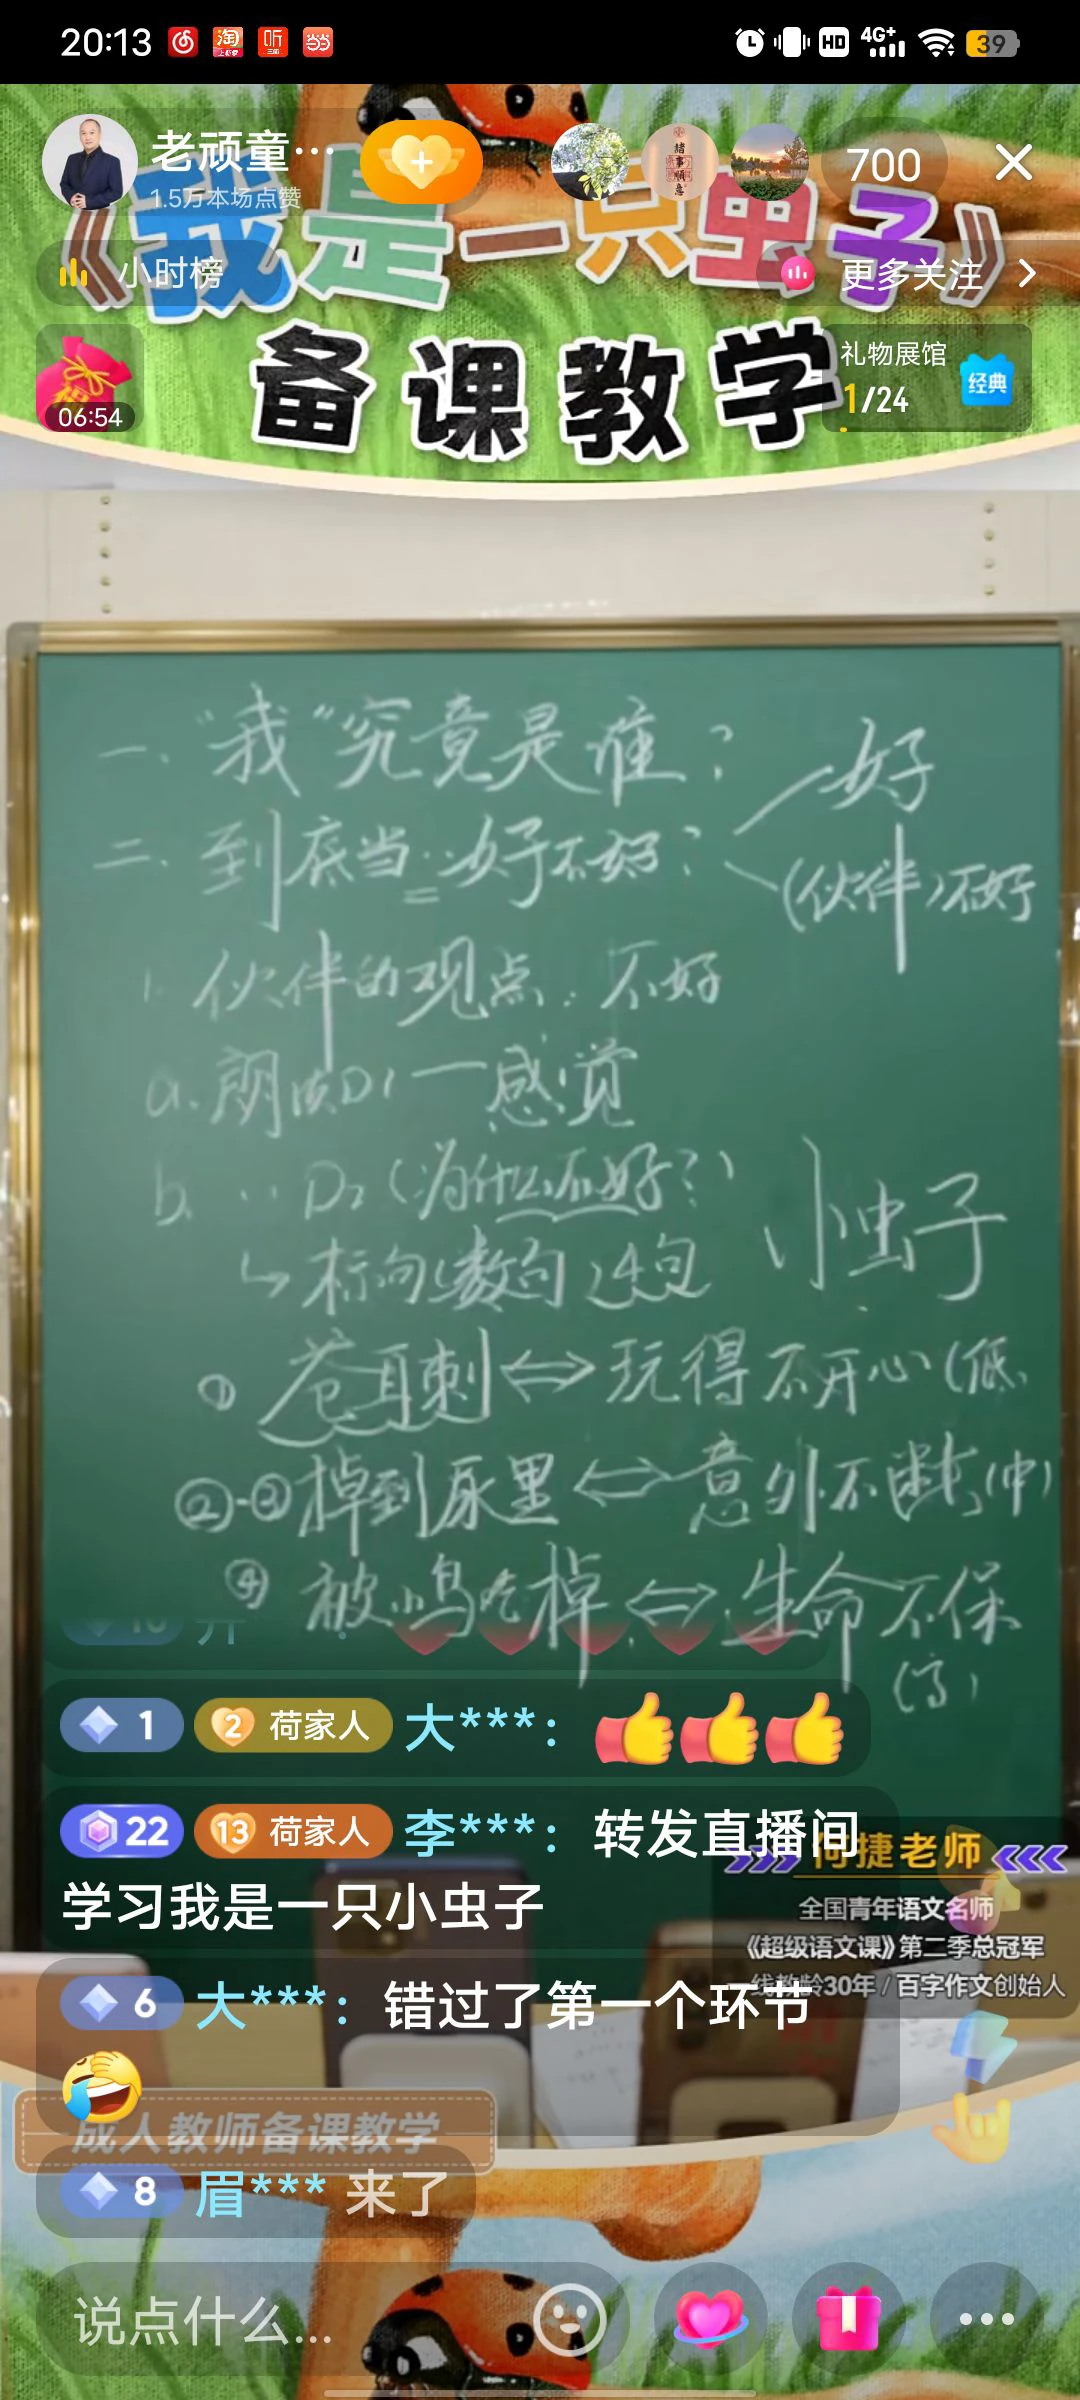 20:13
HD 4G+ 39
老顽童…
1.5万本场点赞
700
《我是一只虫子》
小时榜
更多关注
备课教学
礼物展馆
1/24
经典
06:54
一、“我”究竟是谁？
好
二、到底当…好不好？
(伙伴)不好
1. 伙伴的观点：不好
a. 朗读D1—感觉
b. ‥ D2(为什么不好？)
小虫子
标句(数句)4句
① 苍耳刺⟺玩得不开心(低)
②-③掉到尿里⟺意外不断(中)
④ 被小鸟吃掉⟺生命不保
(高)
1 2 荷家人 大***：
22 13 荷家人 李***：转发直播间
学习我是一只小虫子
何捷老师
全国青年语文名师
《超级语文课》第二季总冠军
一线教龄30年 / 百字作文创始人
6 大***：错过了第一个环节
成人教师备课教学
8 眉*** 来了
说点什么...